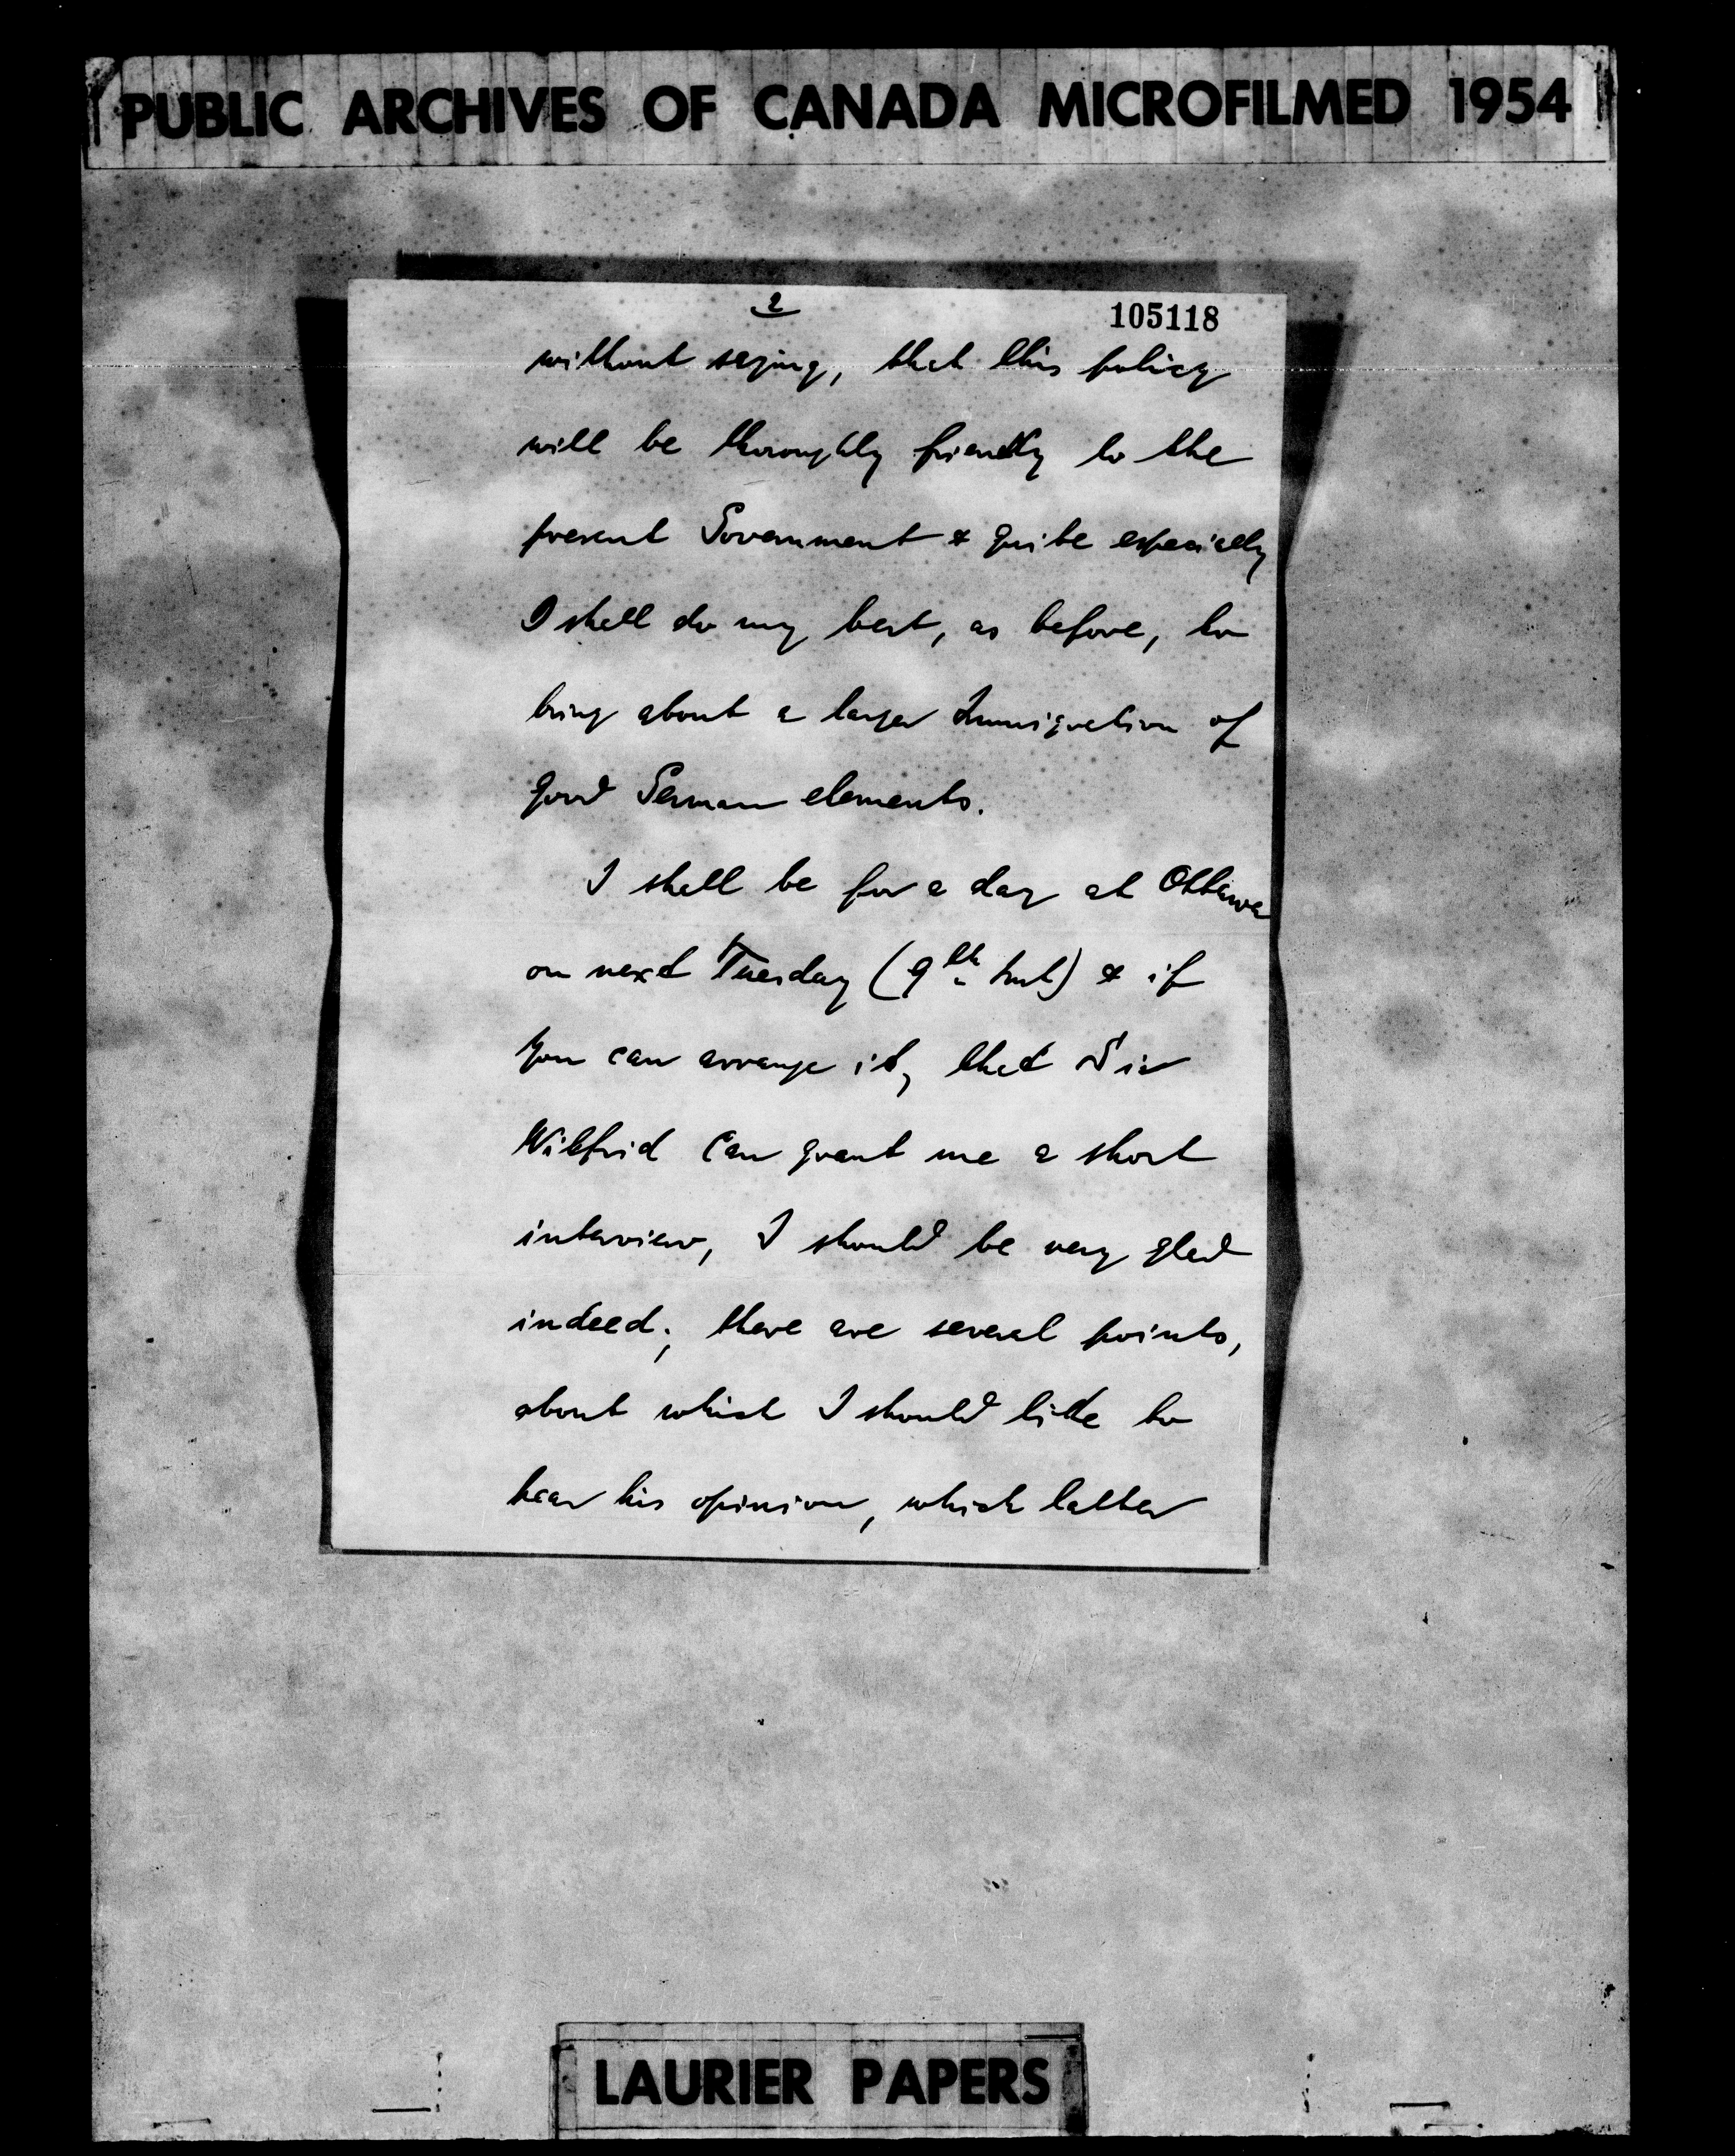 PUBLIC ARCHIVES OF CANADA MICROFILMED 1954
2
105118
without saying, that this policy
will be thoroughly friendly to the
present Government & quite especially
I shall do my best, as before, to
bring about a larger Immigration of
good German elements.
I shall be for a day at Ottawa
on next Tuesday (9th Inst) & if
you can arrange it, that Sir
Wilfrid can grant me a short
interview, I should be very glad
indeed; there are several points,
about which I should like to
hear his opinion, which latter
LAURIER PAPERS